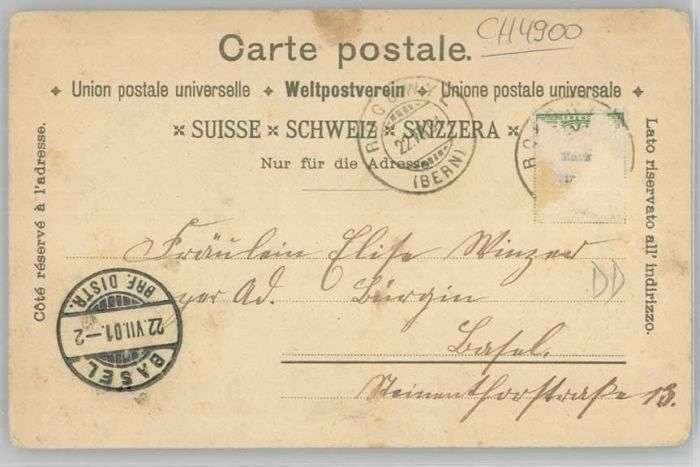 CH4900
Carte postale.
Union postale universelle Weltpostverein Unione postale universale
SUISSE SCHWEIZ SVIZZERA
Nur für die Adresse
(BERN)
Côté réservé à l'adresse.
Lato riservato all' indirizzo.
Fräulein Elise Winzer
per Ad. Bürgin
DD
Basel.
Steinenthorstraße 13.
BASEL
22.VII.01.-2
BRF. DISTR.